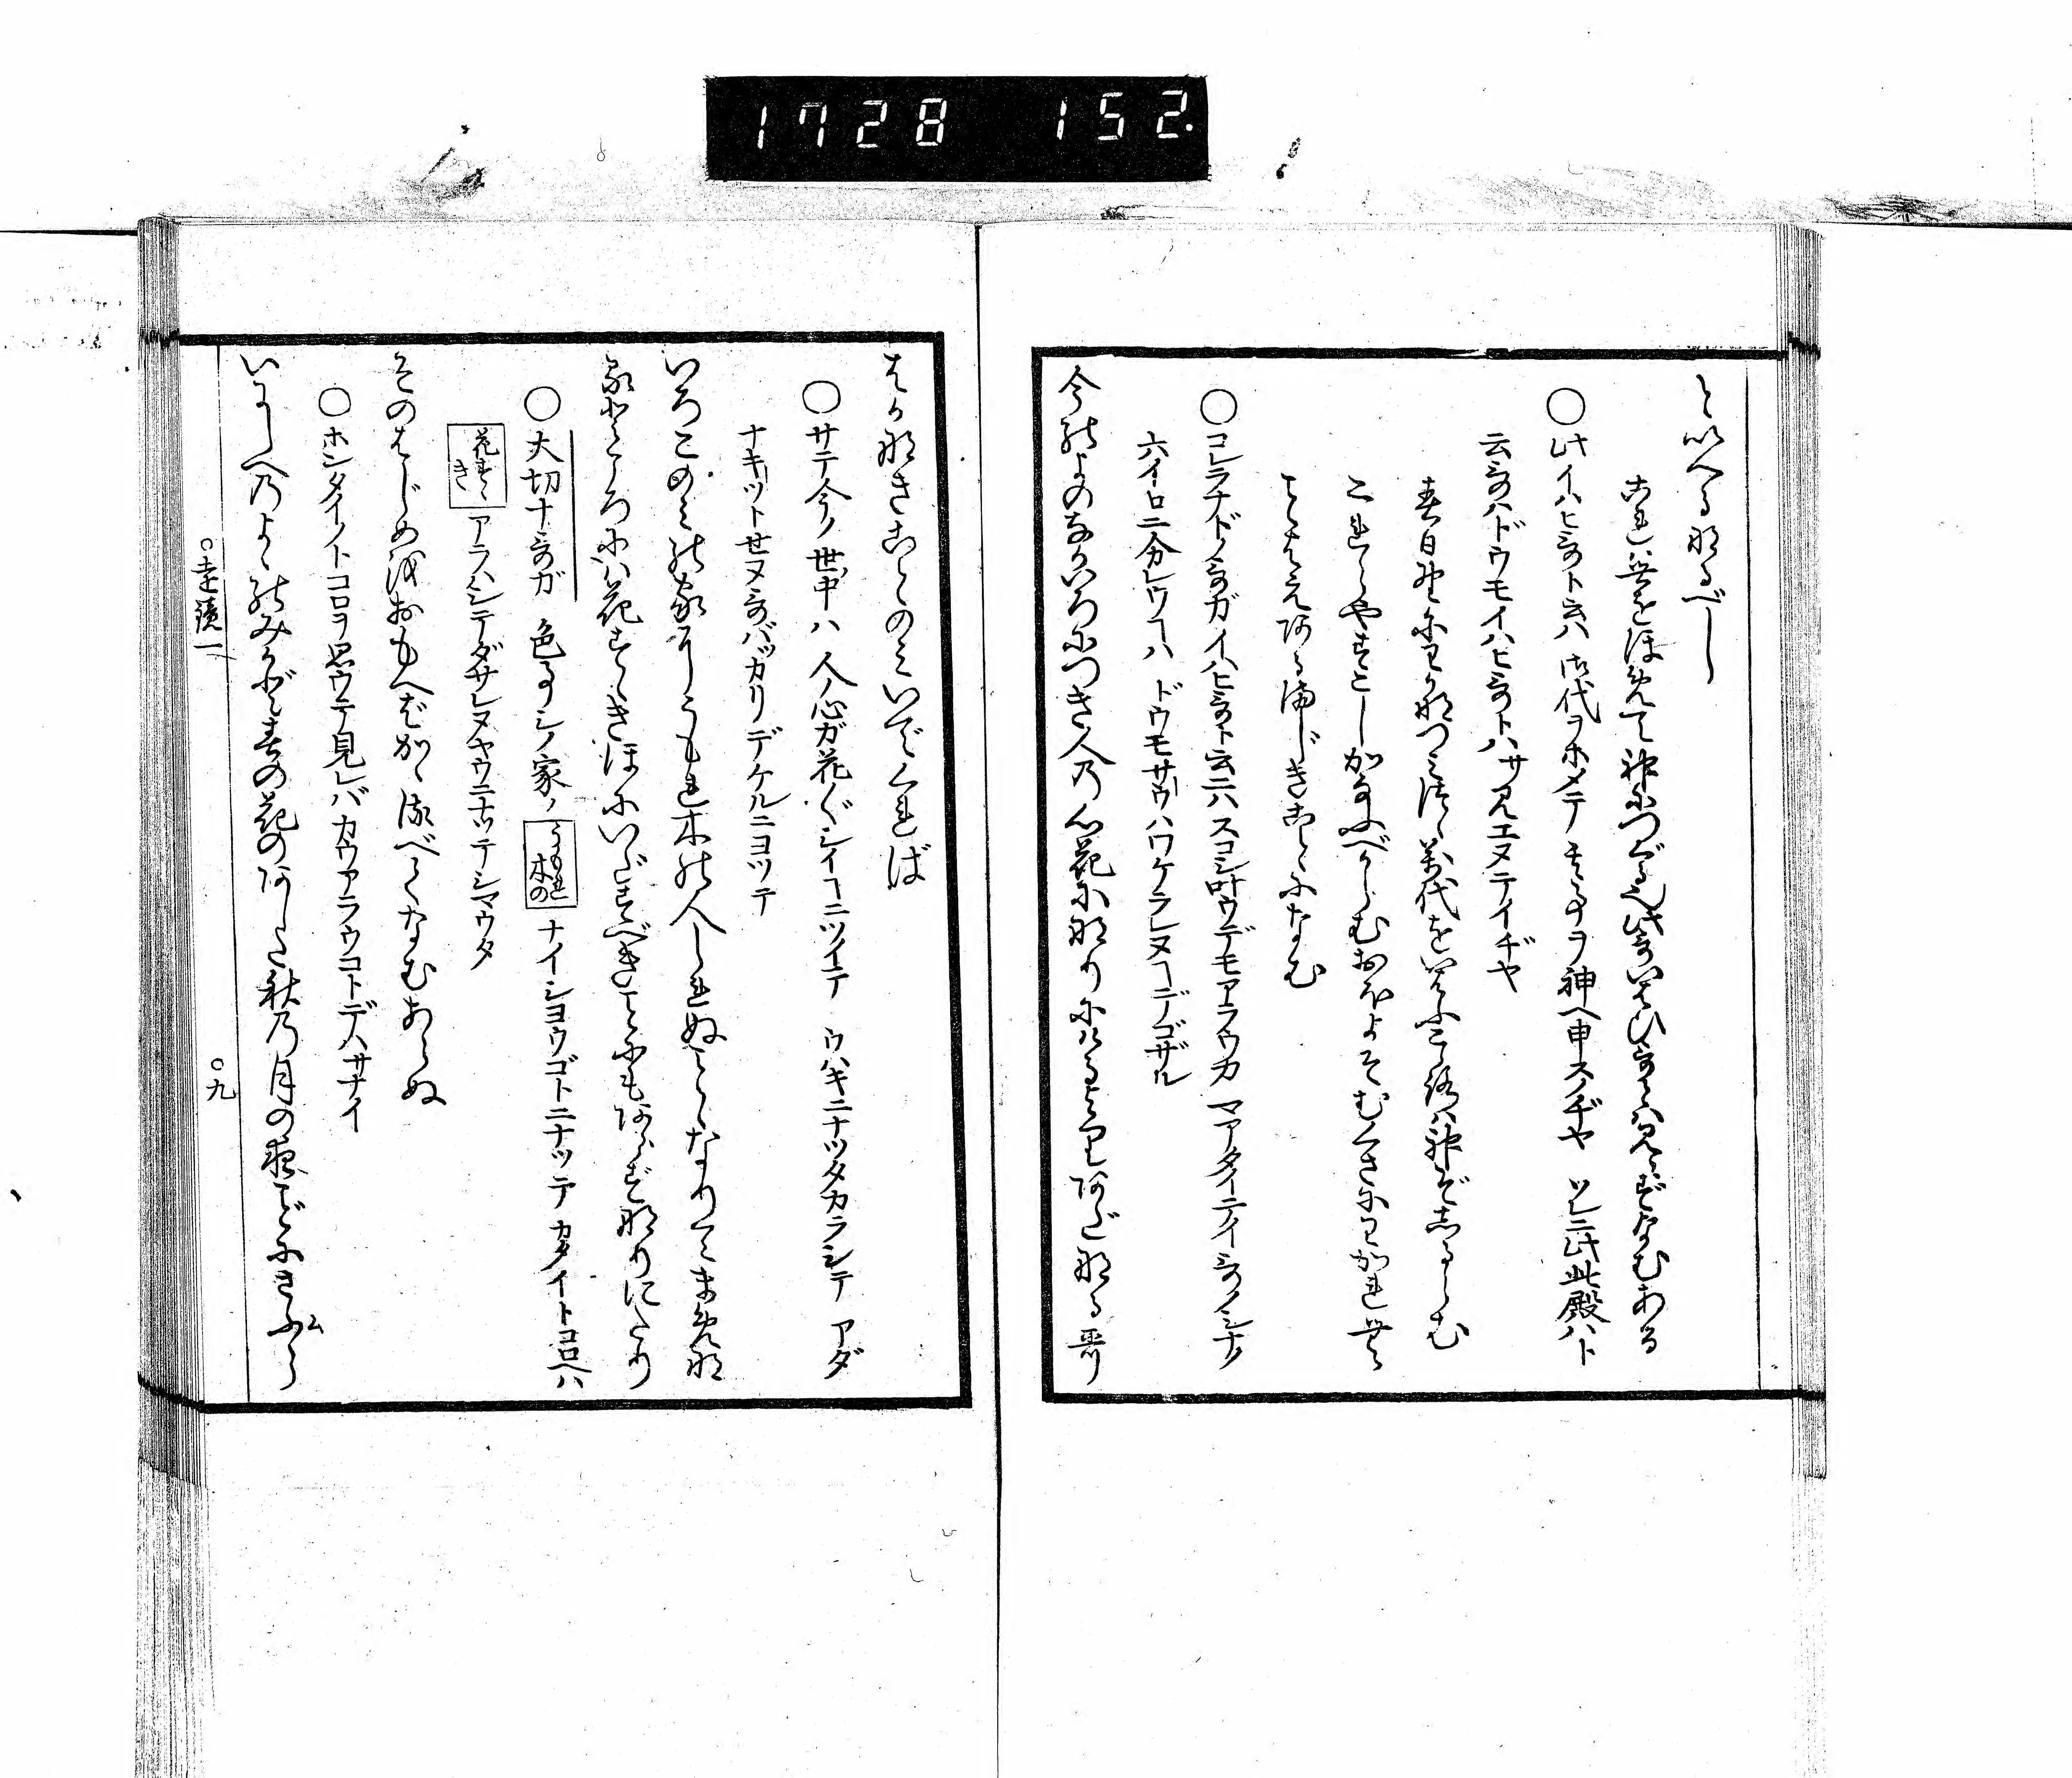 1728 152.
といへるなるべし
これは世をほめて神につぐる也此哥いはひ哥とは見えずなむある
○此イハヒ哥ト云ハ 御代ヲホメテ 其事ヲ神ヘ申スノヂヤ ソレニ此此殿ハト
云哥ハドウモイハヒ哥トハサ見エヌテイヂヤ
春日野にわかなつみつゝ万代をいはふこゝろは神ぞしるらむ
これらやすこしかなふべからむおほよそむくさにわかれむこ
とはえあるまじきことになむ
○コレラナドノ哥ガイハヒ哥ト云ニハスコシ叶ウデモアラウカ マアタイテイ哥ノシナノ
六イロニ分レウヿハ ドウモサウハワケラレヌヿデゴザル
今のよのなかいろにつき人の心花になりにけるよりあだなる哥
はかなきことのみいでくれば
○サテ今ノ世ノ中ハ 人ノ心ガ花〴〵シイヿニツイテ ウハキニナツタカラシテ アダ
ナキツトセヌ哥バッカリデケルニヨツテ
いろこのみの家にうもれ木の人しれぬことゝなりてまめな
るところには花すゝきほにいだすべきことにもあらずなりにたり
○大切ナ哥ガ 色事シノ家ノ うもれ木の ナイシヨウゴトニナツテ カタイトコロヘハ
花すゝき アラハシテダサレヌヤウニナッテシマウタ
そのはじめをおもへばかゝるべくなむあらぬ
○ホンタイノトコロヲ思ウテ見レバカウアラウコトデハサナイ
いにしへのよゝのみかど春の花のあした秋の月の夜ごとにさふら
○遠鏡一 ○九